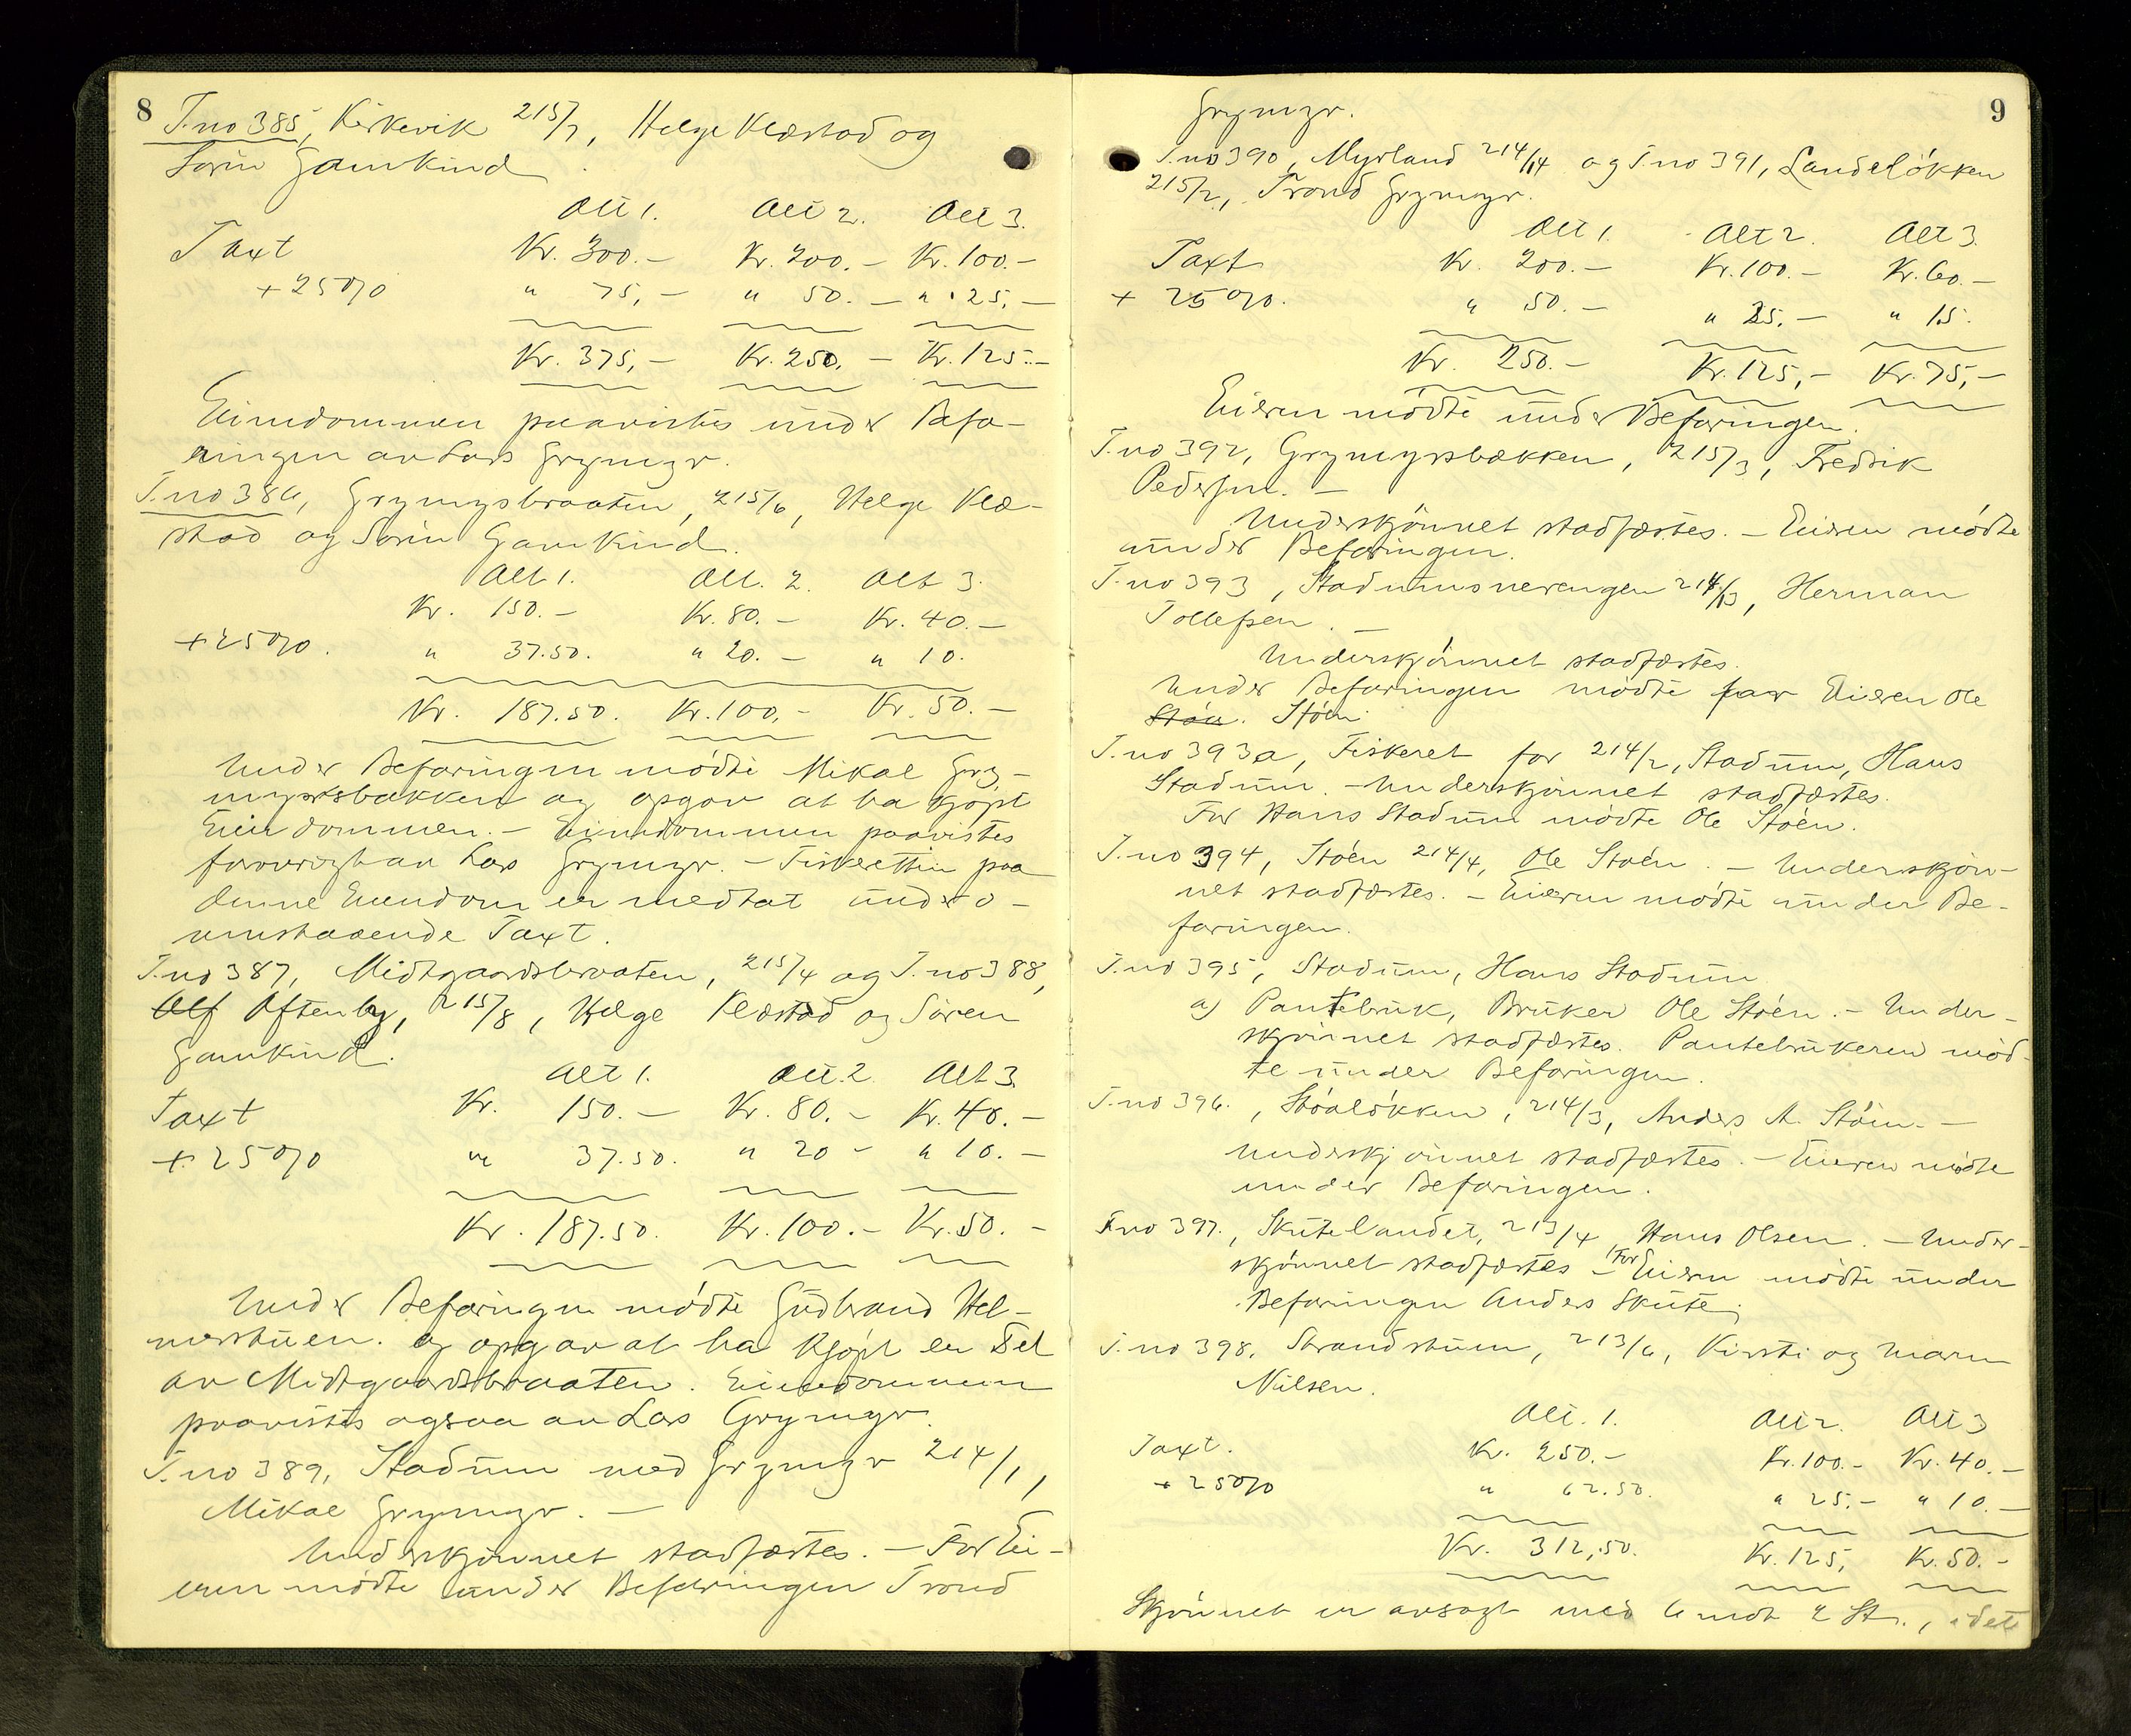 8
T.no 385, Kirkevik 215/7, Helge Klæstad og
Sørin Gamkind
Alt 1. Alt 2. Alt 3.
Taxt Kr. 300.- Kr. 200.- Kr. 100.-
+ 25% " 75,- " 50.- " 25,-
Kr. 375,- Kr. 250,- Kr. 125.-
Eiendommen paavistes under Befa-
ringen av Lars Grymyr.
T.no 386, Grymyrsbraaten, 215/6, Helge Klæ-
stad og Sørin Gamkind.
Alt 1. Alt. 2. Alt 3.
Kr. 150.- Kr. 80.- Kr. 40.-
+ 25%. " 37.50. " 20.- " 10.
Kr. 187.50. Kr. 100,- Kr. 50.-
Under Befaringen mødte Mikal Gry-
myrsbakken og opgav at ha kjøpt
Eiendommen. - Eiendommen paavistes
forøvrigt av Lars Grymyr. - Fiskeretten paa
denne Eiendom er medtat under o-
venstaaende Taxt.
T.no 387, Midtgaardsbraaten, 215/4 og T.no 388,
Alf Aftenby, 215/8, Helge Klæstad og Søren
Gamkind.
Alt 1. Alt. 2. Alt 3.
Taxt Kr. 150.- Kr. 80.- Kr. 40.-
+ 25% " 37.50. " 20 - " 10.-
Kr. 187.50. Kr. 100.- Kr. 50.-
Under Befaringen mødte Gudbrand Hel-
merstuen. og opgav at ha kjøpt en Del
av Midtgaardsbraaten. Eiendommen
paavistes ogsaa av Lars Grymyr.
T.no 389, Stadum med Grymyr 214/1,
Mikal Grymyr. -
Underskjønnet stadfæstes. - For Ei-
eren mødte under Befaringen Trond
9
Grymyr.
T.no 390, Myrland 214/14 og T.no 391, Landeløkken
215/2, Trond Grymyr.
Alt 1. Alt 2. Alt 3.
Taxt Kr. 200.- Kr. 100.- Kr. 60.-
+ 25%. " 50.- " 25.- " 15.
Kr. 250.- Kr. 125,- Kr. 75,-
Eieren mødte under Befaringen.
T.no 392, Grymyrsbakken, 215/3, Fredrik
Pedersen. -
Underskjønnet stadfæstes. - Eieren mødte
under Befaringen.
T.no 393, Stadumsnerengen 214/13, Herman
Tollefsen. -
Underskjønnet stadfæstes.
Under Befaringen mødte for Eieren Ole
Stöen. Støen
T.no 393a, Fiskeret for 214/2, Stadum, Hans
Stadum. - Underskjønnet stadfæstes.
For Hans Stadum mødte Ole Støen.
T.no 394, Støen 214/4, Ole Støen. - Underskjøn-
net stadfæstes. - Eieren mødte under Be-
faringen.
T.no 395, Stadum, Hans Stadum
a) Pantebruk, Bruker Ole Støen. - Under-
skjønnet stadfæstes. Pantebrukeren mød-
te under Befaringen.
T.no 396., Støaløkken, 214/3, Anders A. Støen. -
Underskjønnet stadfæstes. - Eieren mødte
under Befaringen.
T.no 397., Skutelandet, 213/4, Hans Olsen. - Under-
skjønnet stadfæstes - For Eieren mødte under
Befaringen Anders Skute.
T.no 398, Strandstuen, 213/6, Kirsti og Maren
Nilsen.
Alt. 1. Alt 2. Alt 3
Taxt. Kr. 250.- Kr. 100.- Kr. 40.-
+ 25% " 62.50. " 25.- " 10.-
Kr. 312,50. Kr. 125, Kr. 50.-
Skjønnet er avsagt med 6 mot 2 St., idet